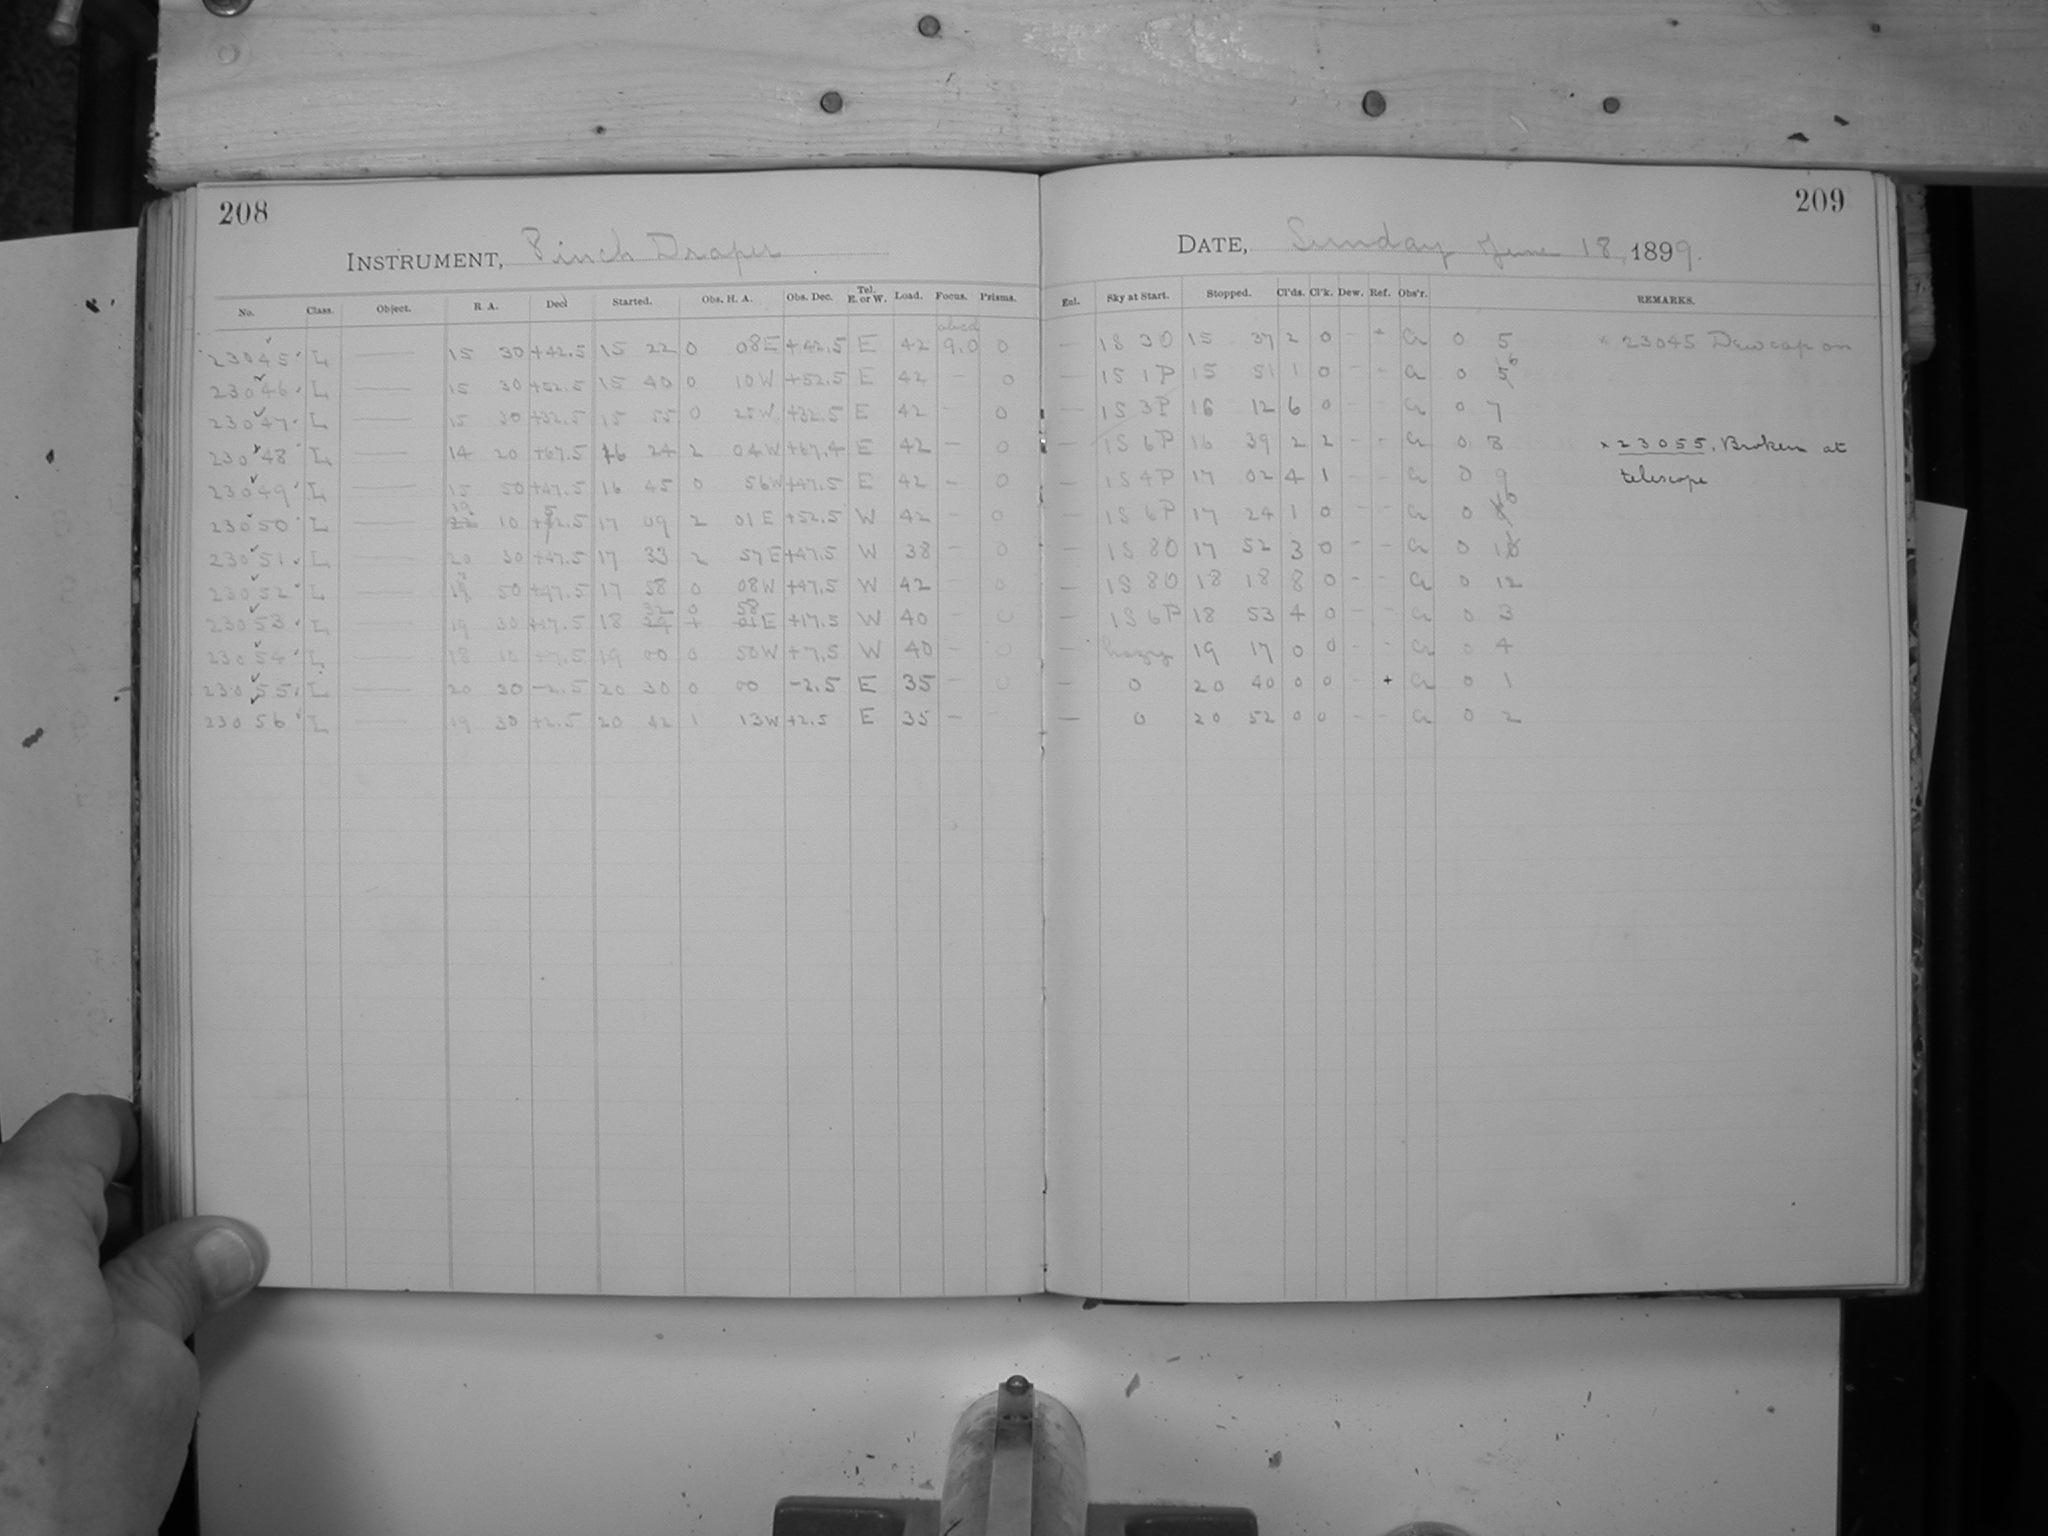 208
209
INSTRUMENT, 8 inch Draper
DATE, Sunday June 18, 1899.
No. Class. Object. R. A. Decl Started. Obs. H. A. Obs. Dec. Tel. E. or W. Load. Focus. Prisms. Enl. Sky at Start. Stopped. Cl'ds. Cl'k. Dew. Ref. Obs'r. REMARKS.
abcd
23045 L — 15 30 +42.5 15 22 0 08E +42.5 E 42 9.0 0 — 1S 30 15 37 2 0 - + 0 5 × 23045 Dewcap on
23046 L — 15 30 +52.5 15 40 0 10W +52.5 E 42 - 0 — 1S 1P 15 51 1 0 - - 0 6
23047 L — 15 30 +32.5 15 55 0 25W +32.5 E 42 - 0 — 1S 3P 16 12 6 0 - - 0 7
23048 L — 14 20 +67.5 16 24 2 04W +67.4 E 42 - 0 — 1S 6P 16 39 2 2 - - 0 8 × 23055. Broken at
23049 L — 15 50 +47.5 16 45 0 56W +47.5 E 42 - 0 — 1S 4P 17 02 4 1 - - 0 9 telescope
23050 L — 19 10 +52.5 17 09 2 01E +52.5 W 42 - 0 — 1S 6P 17 24 1 0 - - 0
23051 L — 20 30 +47.5 17 33 2 57E +47.5 W 38 - 0 — 1S 80 17 52 3 0 - - 0
23052 L — 50 +47.5 17 58 0 08W +47.5 W 42 - 0 — 1S 80 18 18 8 0 - - 0 12
23053 L — 19 30 +17.5 18 32 0 58E +17.5 W 40 - 0 — 1S 6P 18 53 4 0 - - 0 3
23054 L — 18 10 +7.5 19 00 0 50W +7.5 W 40 - 0 — hazy 19 17 0 0 - - 0 4
23055 L — 20 30 -2.5 20 30 0 00 -2.5 E 35 - 0 — 0 20 40 0 0 - + 0 1
23056 L — 19 30 +2.5 20 42 1 13W +2.5 E 35 - — 0 20 52 0 0 - - 0 2